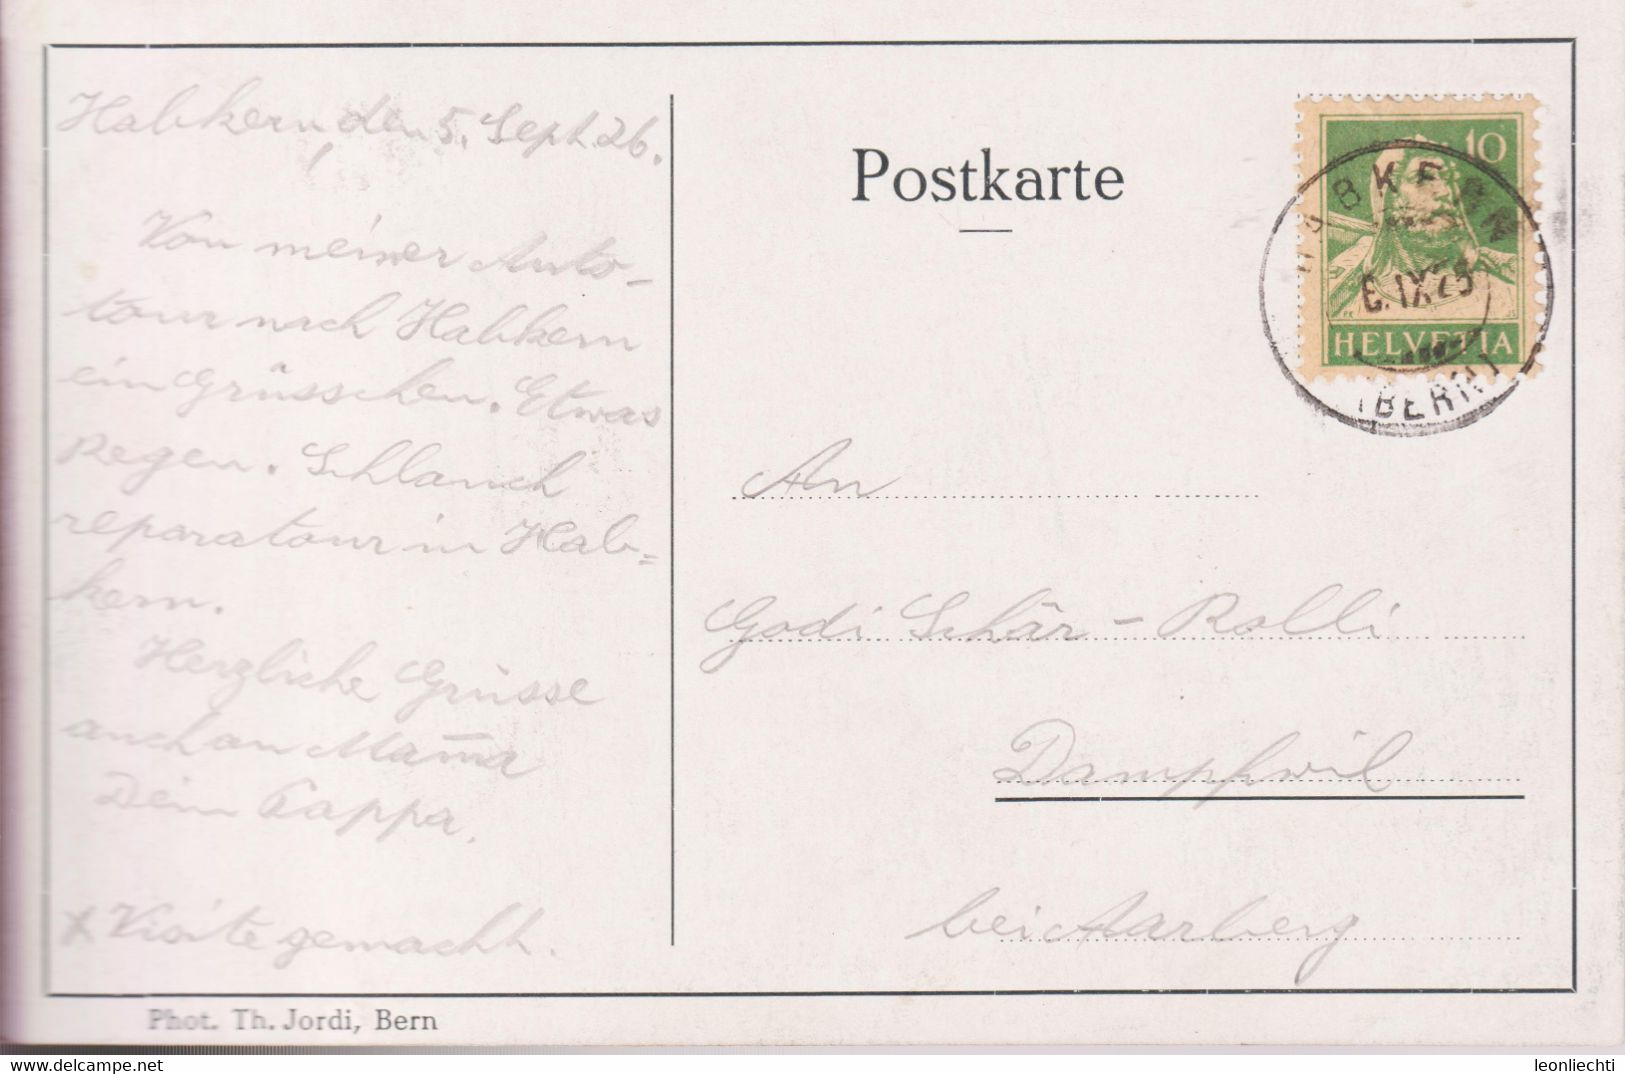 Habkern, den 5. Sept. 26.
Von meiner Auto-
tour nach Habkern
ein Grüsschen. Etwas
Regen. Schlauch
reparatour in Hab=
kern.
Herzliche Grüsse
auch an Mama
Dein Pappa.
x Visite gemacht.
Phot. Th. Jordi, Bern
Postkarte
10
HELVETIA
HABKERN
6.IX.26
(BERN)
An
Godi Schär-Rolli
Dampfwil
bei Aarberg
leonliechti